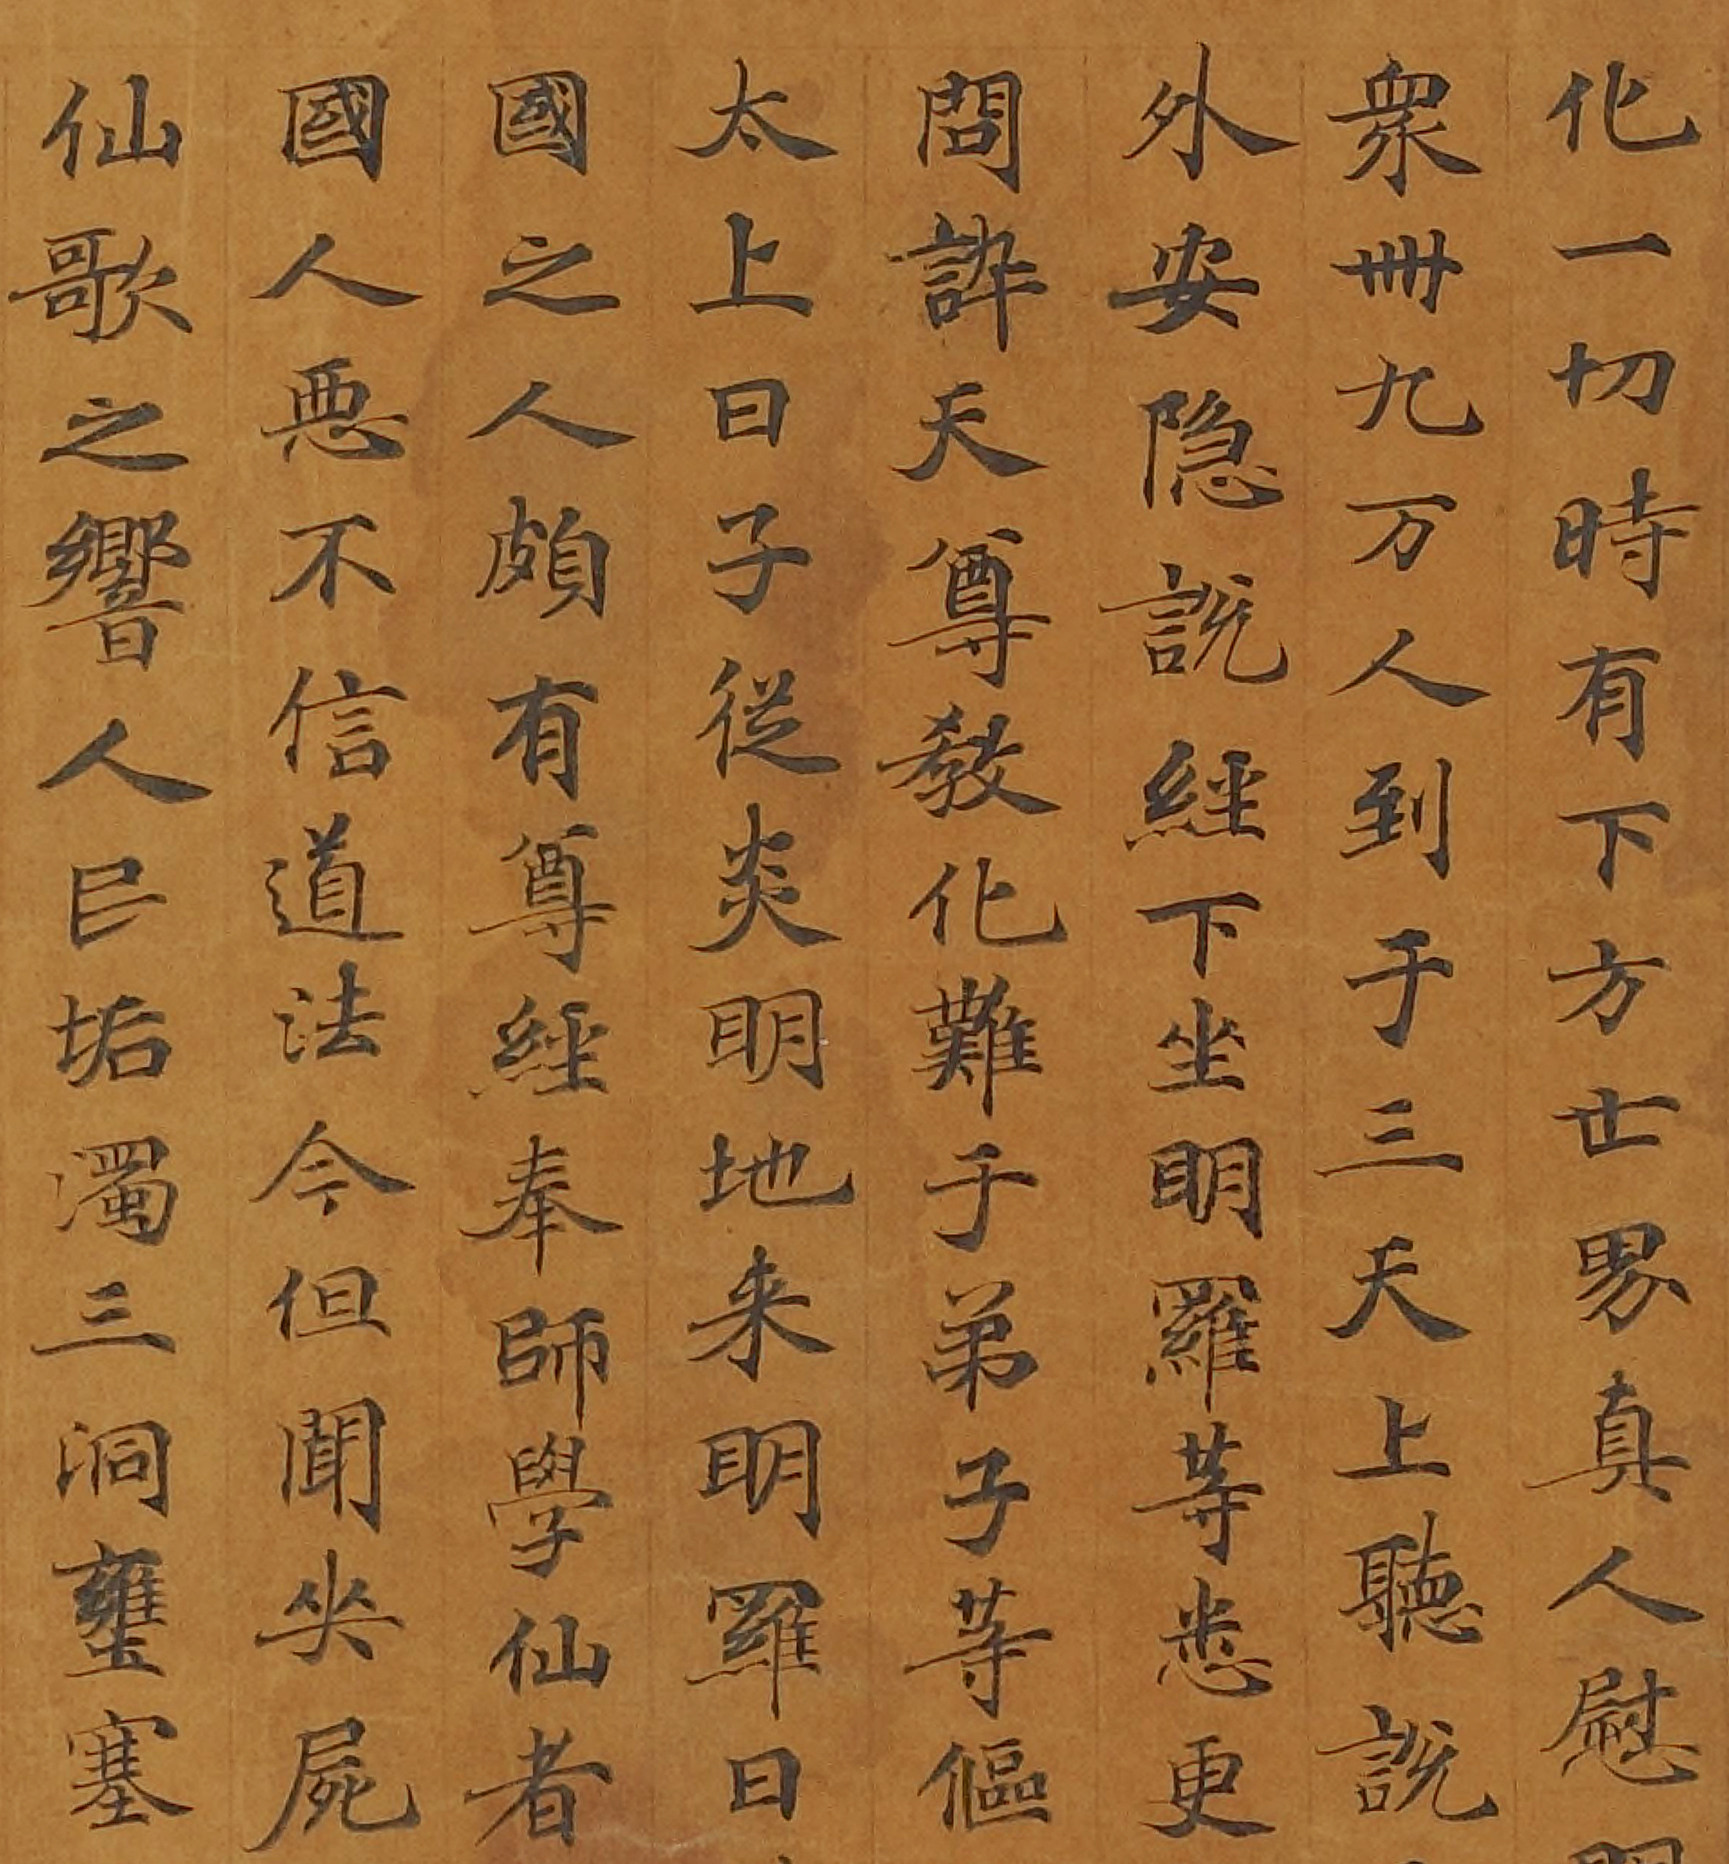 化一切時有下方世界真人慰
衆卌九万人到于三天上聽說
外安隐說經下坐明羅等悉更
問訴天尊教化難于弟子等傴
太上曰子從炎明地来明羅曰
國之人頗有尊經奉師學仙者
國人惡不信道法今但聞哭屍
仙歌之響人巳垢濁三洞壅塞